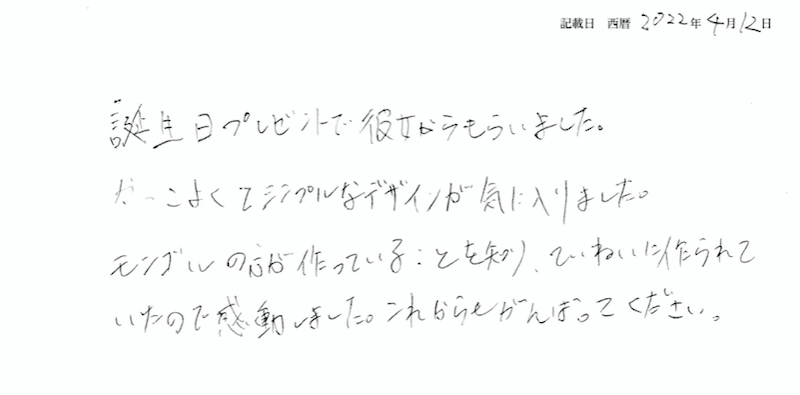 記載日 西暦 2022年4月12日
誕生日プレゼントで彼女からもらいました。
かっこよくてシンプルなデザインが気に入りました。
モンゴルの方が作っていることを知り、ていねいに作られて
いたので感動しました。これからもがんばってください。